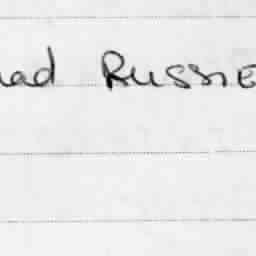 had RUSSIE